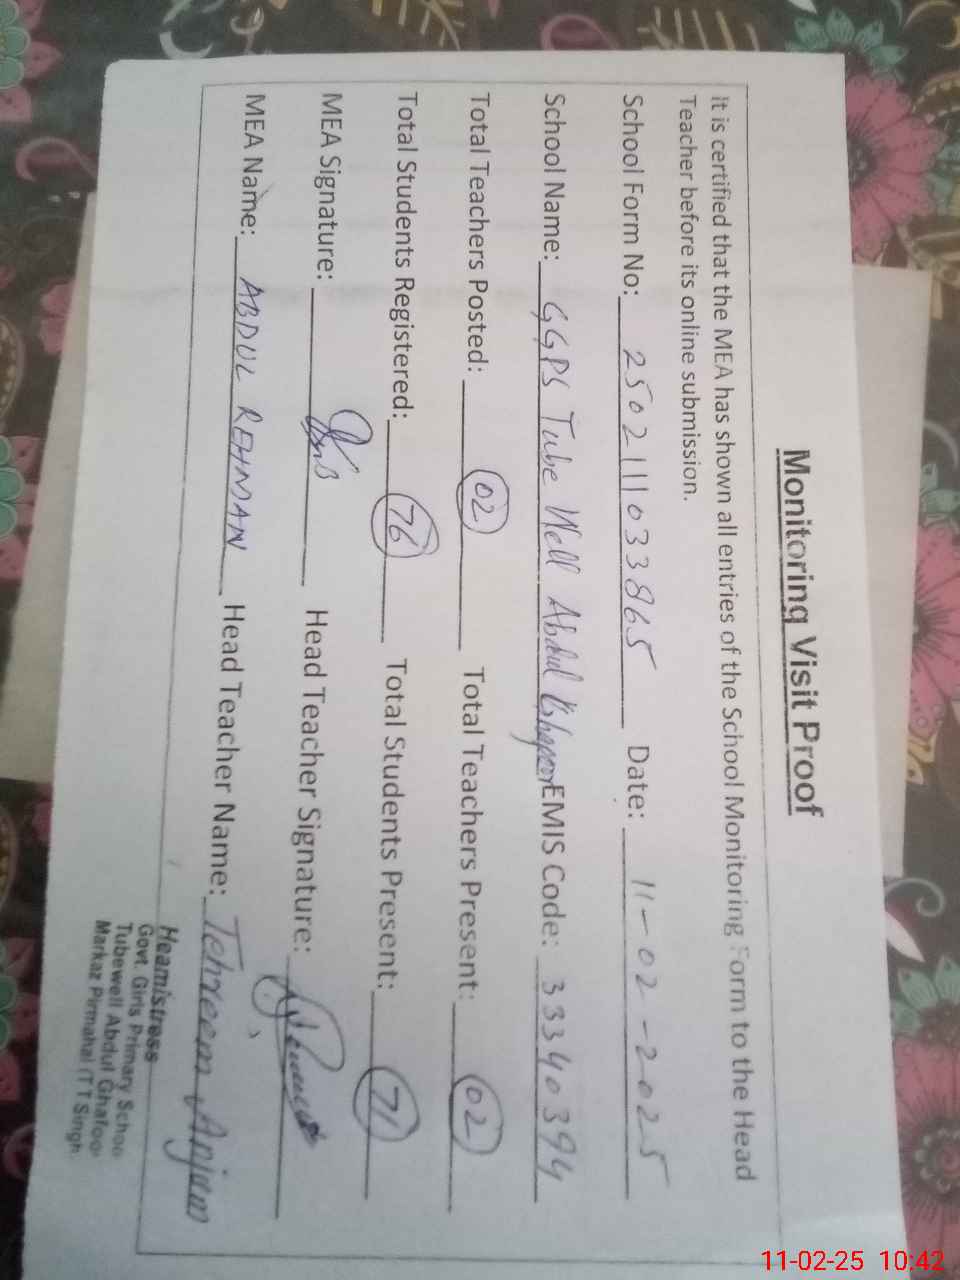 Monitoring Visit Proof
It is certified that the MEA has shown all entries of the School Monitoring Form to the Head
Teacher before its online submission.
School Form No: 2502111033865 Date: 11-02-2025
School Name: GGPS Tube Well Abdul EMIS Code: 33340394
Total Teachers Posted: 02 Total Teachers Present: 02
Total Students Registered: 76 Total Students Present: 71
MEA Signature: Head Teacher Signature:
MEA Name: ABDUL REHMAN Head Teacher Name: Tehreem Anjam
Heamistress
Govt. Girls Primary Schoo
Tubewell Abdul Ghafoor
Markaz Pirmahal (T T Singh.
11-02-25 10:42